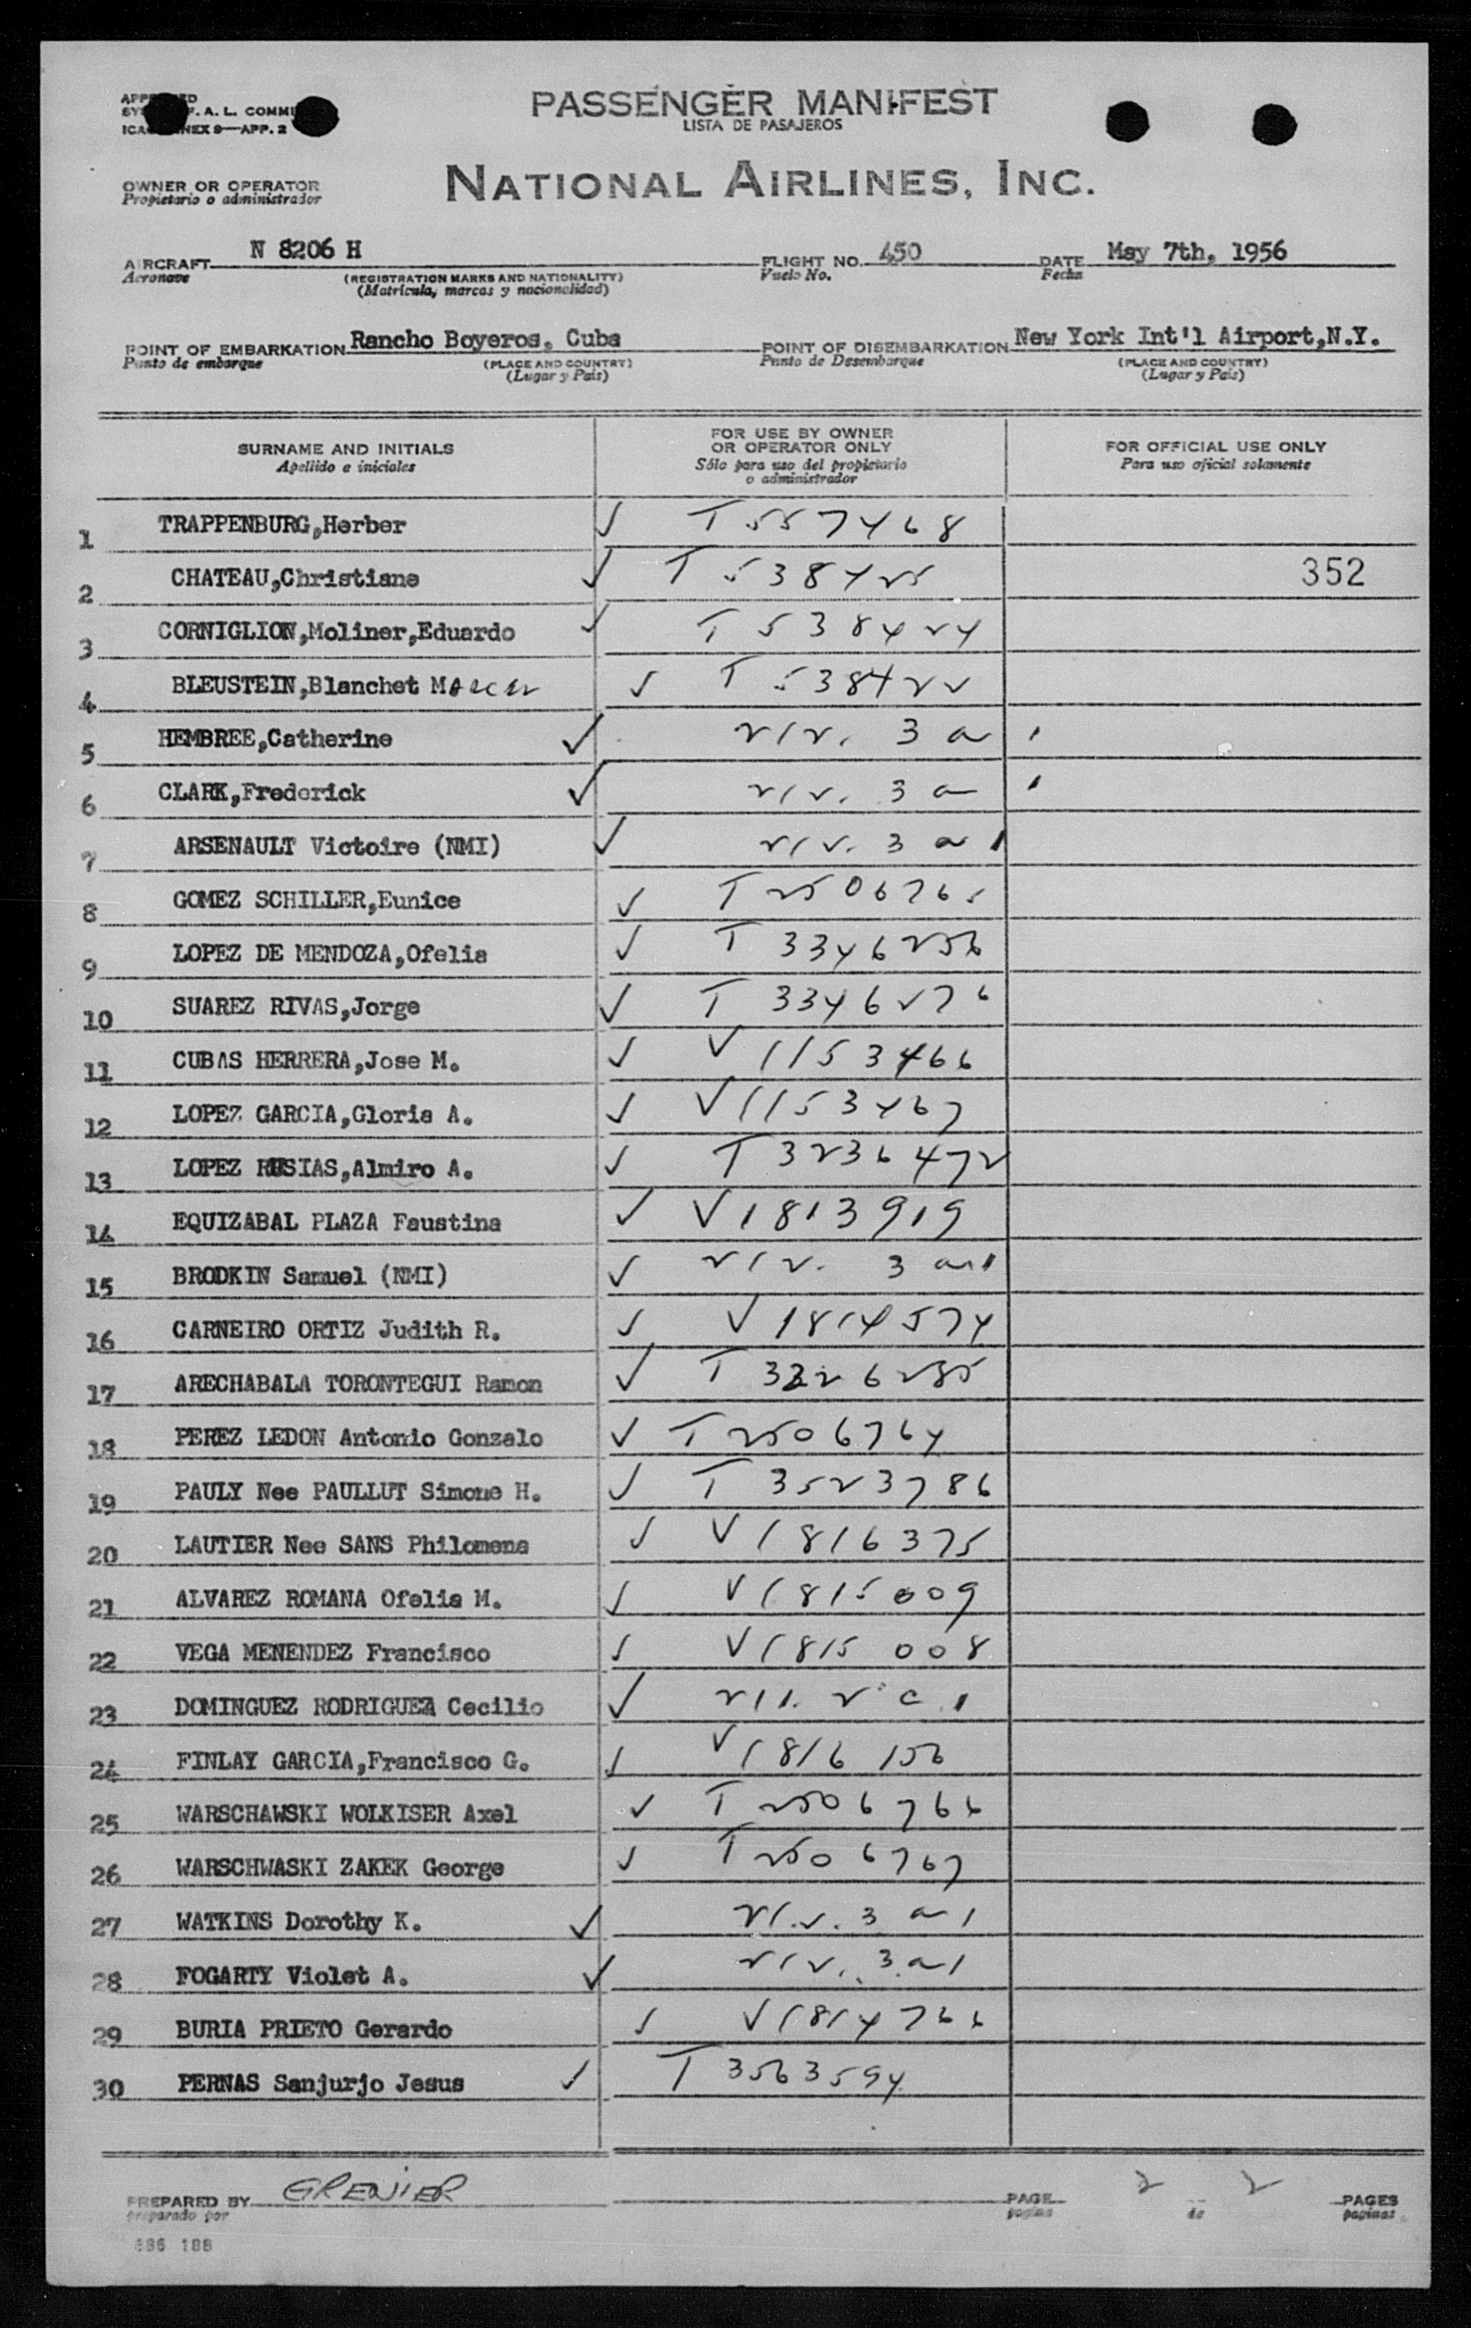 PASSENGER MANIFEST
LISTA DE PASAJEROS
F. A. L. COMMI
ICAO ANNEX 9—APP. 2
OWNER OR OPERATOR
Propietario o administrador
NATIONAL AIRLINES, INC.
AIRCRAFT N 8206 H FLIGHT NO. 450 DATE May 7th, 1956
Aeronave (REGISTRATION MARKS AND NATIONALITY) Vuelo No. Fecha
(Matrícula, marcas y nacionalidad)
POINT OF EMBARKATION Rancho Boyeros, Cuba POINT OF DISEMBARKATION New York Int'l Airport,N.Y.
Punto de embarque (PLACE AND COUNTRY) Punto de Desembarque (PLACE AND COUNTRY)
(Lugar y País) (Lugar y País)
SURNAME AND INITIALS FOR USE BY OWNER OR OPERATOR ONLY FOR OFFICIAL USE ONLY
Apellido e iniciales Sólo para uso del propietario o administrador Para uso oficial solamente
1 TRAPPENBURG,Herber ✓ T 557468
2 CHATEAU,Christiane ✓ T 538425 352
3 CORNIGLION,Moliner,Eduardo ✓ T 538424
4 BLEUSTEIN,Blanchet ✓ T 538422
5 HEMBREE,Catherine ✓ 212. 3 a 1
6 CLARK,Frederick ✓ 212. 3 a 1
7 ARSENAULT Victoire (NMI) ✓ 212. 3 a 1
8 GOMEZ SCHILLER,Eunice ✓ T 2506765
9 LOPEZ DE MENDOZA,Ofelia ✓ T 3346256
10 SUAREZ RIVAS,Jorge ✓ T 3346276
11 CUBAS HERRERA,Jose M. ✓ V 1153466
12 LOPEZ GARCIA,Gloria A. ✓ V 1153467
13 LOPEZ RUSIAS,Almiro A. ✓ T 3236472
14 EQUIZABAL PLAZA Faustina ✓ V 1813919
15 BRODKIN Samuel (NMI) ✓ 212. 3 a 1
16 CARNEIRO ORTIZ Judith R. ✓ V 1814574
17 ARECHABALA TORONTEGUI Ramon ✓ T 3326285
18 PEREZ LEDON Antonio Gonzalo ✓ T 2506764
19 PAULY Nee PAULLUT Simone H. ✓ T 3523786
20 LAUTIER Nee SANS Philomena ✓ V 1816375
21 ALVAREZ ROMANA Ofelia M. ✓ V 1815009
22 VEGA MENENDEZ Francisco ✓ V 1815008
23 DOMINGUEZ RODRIGUEZ Cecilio ✓ 211. 2 c 1
24 FINLAY GARCIA,Francisco G. ✓ V 1816156
25 WARSCHAWSKI WOLKISER Axel ✓ T 2506766
26 WARSCHWASKI ZAKEK George ✓ T 2506767
27 WATKINS Dorothy K. ✓ 212. 3 a 1
28 FOGARTY Violet A. ✓ 212. 3 a 1
29 BURIA PRIETO Gerardo ✓ V 1814766
30 PERNAS Sanjurjo Jesus ✓ T 3563594
PREPARED BY GRENIER PAGE 2 2 PAGES
preparado por pagina de paginas